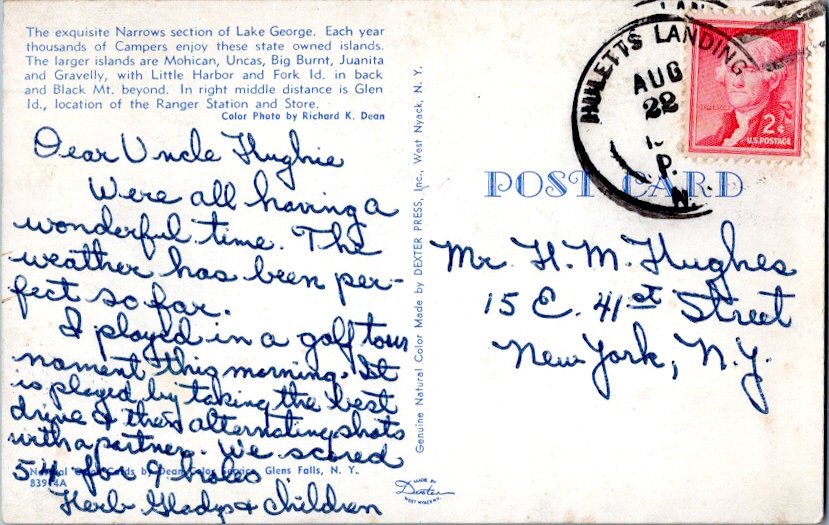 The exquisite Narrows section of Lake George. Each year
thousands of Campers enjoy these state owned islands.
The larger islands are Mohican, Uncas, Big Burnt, Juanita
and Gravelly, with Little Harbor and Fork Id. in back
and Black Mt. beyond. In right middle distance is Glen
Id., location of the Ranger Station and Store.
Color Photo by Richard K. Dean
Dear Uncle Hughie
Were all having a
wonderful time. The
weather has been per-
fect so far.
I played in a golf tour
nament this morning. It
is played by taking the best
drive & then alternating shots
with a partner. We scored
54 for 9 holes
Herb Gladys & Children
Natural Color Cards by Dean Color Service, Glens Falls, N. Y.
83944A
Genuine Natural Color Made by DEXTER PRESS, Inc., West Nyack, N. Y.
MADE BY
Dexter
WEST NYACK, N.Y.
HULETTS LANDING
AUG
22
P.
N.
LAN
2¢
U.S. POSTAGE
POST CARD
Mr. H. M. Hughes
15 E. 41st Street
New York, N.Y.